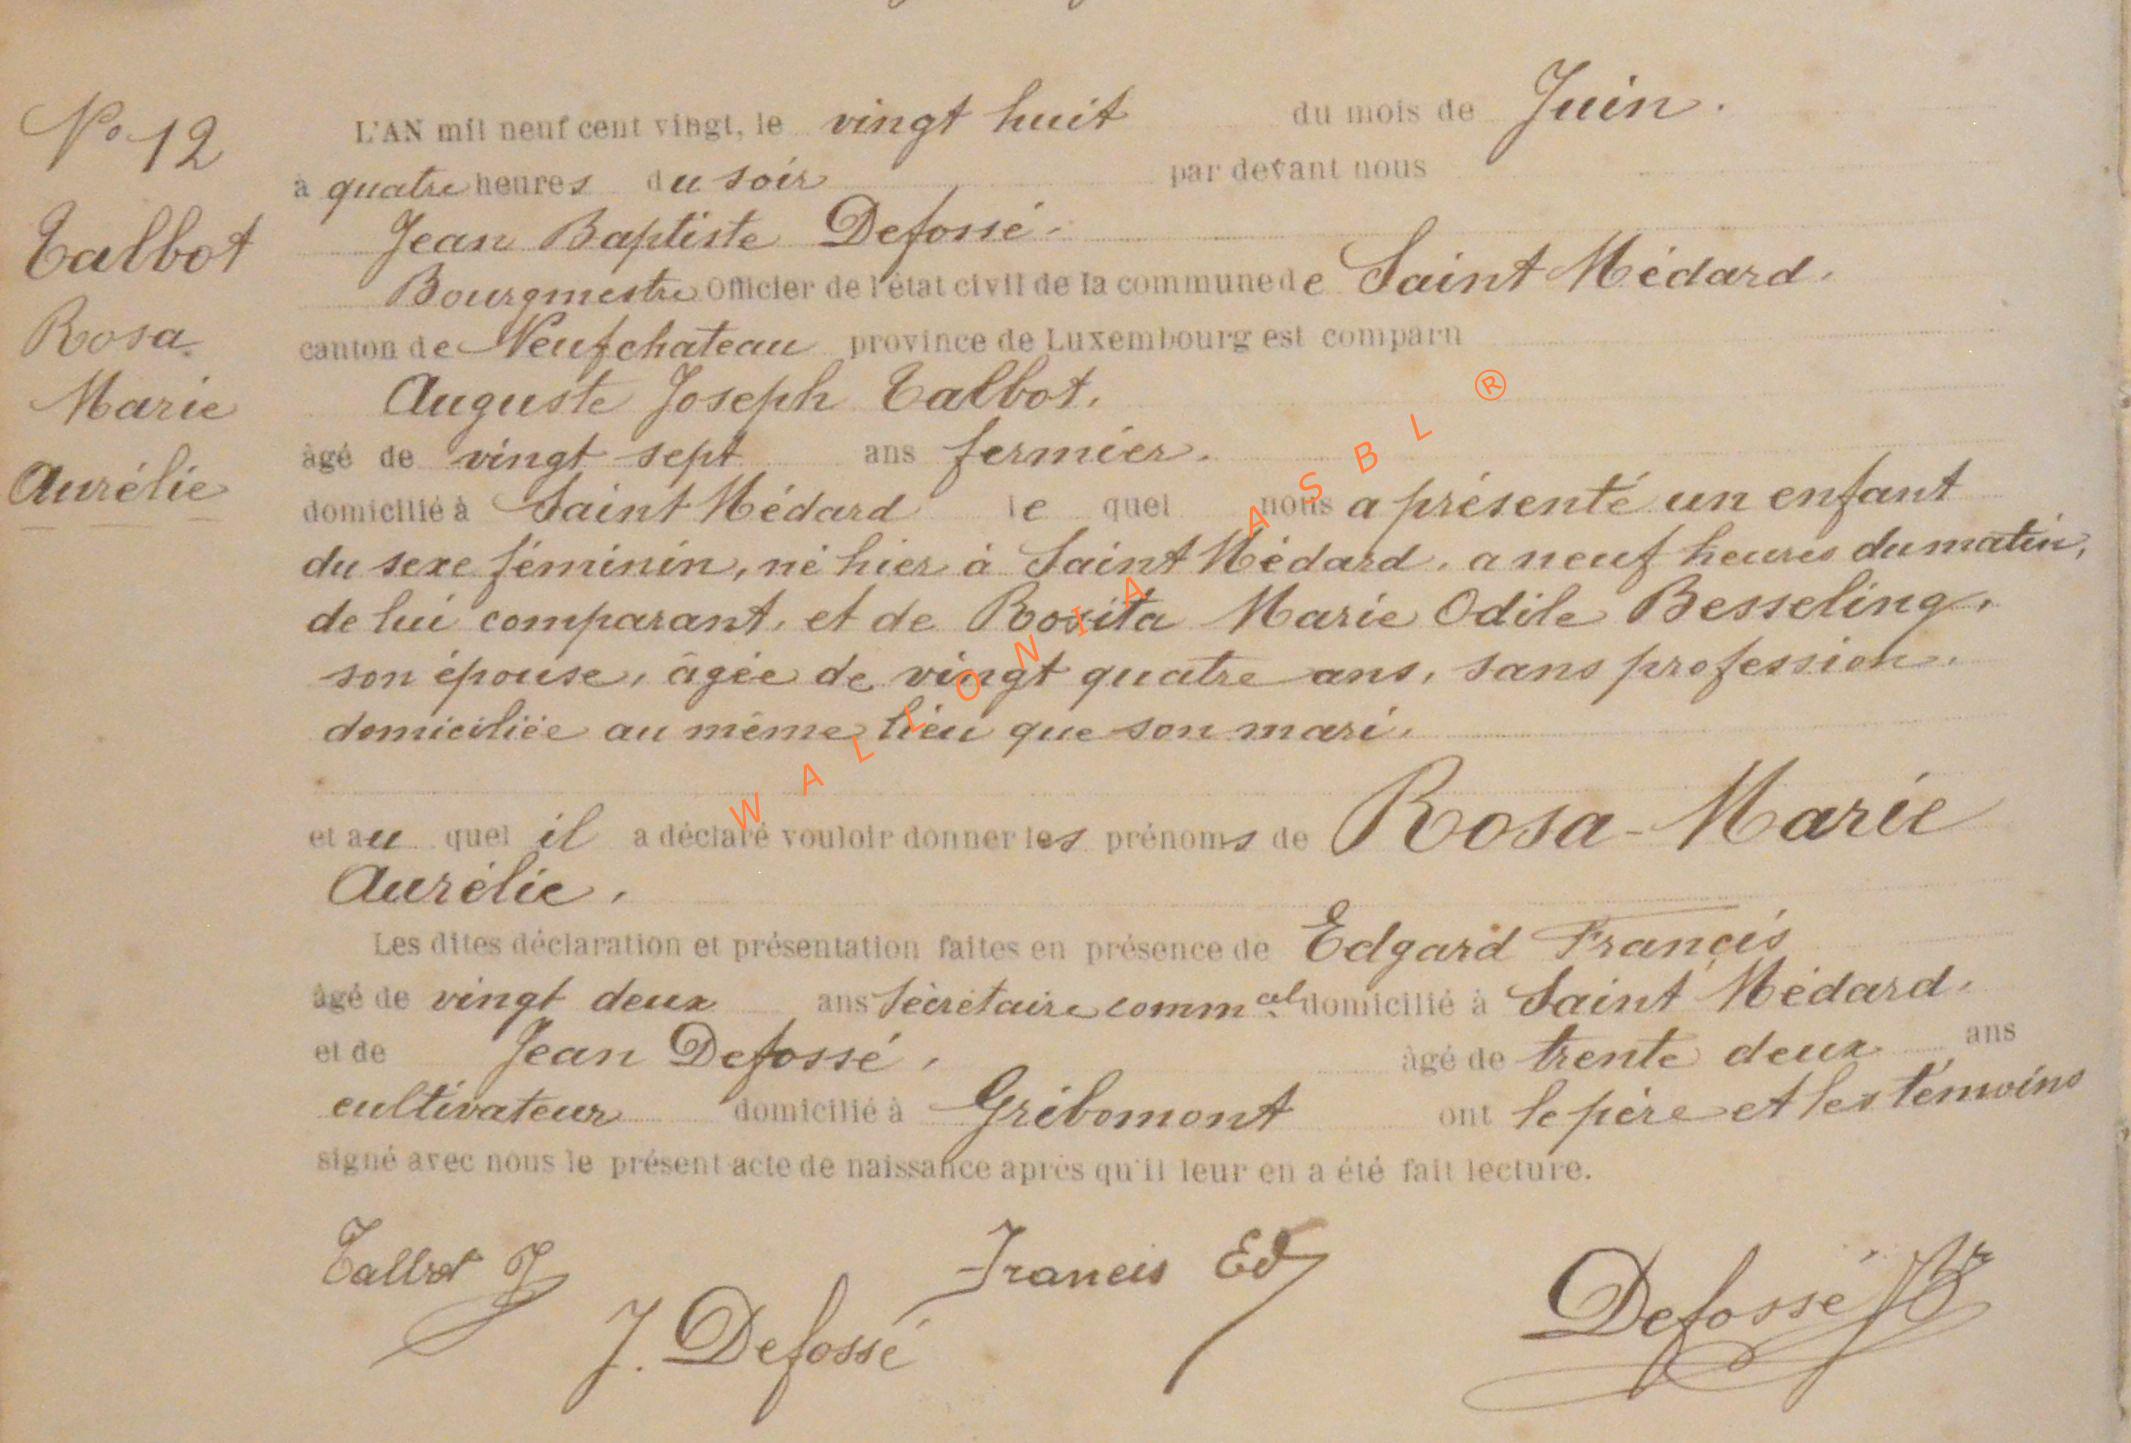 No 12
Talbot
Rosa
Marie
Aurélie
L'AN mil neuf cent vingt, le vingt huit du mois de Juin.
à quatre heures du soir par devant nous
Jean Baptiste Defossé.
Bourgmestre Officier de l'état civil de la commune de Saint Médard.
canton de Neufchateau province de Luxembourg est comparu
Auguste Joseph Talbot.
âgé de vingt sept ans fermier.
domicilié à Saint Médard le quel nous a présenté un enfant
du sexe féminin, né hier à Saint Médard. a neuf heures du matin,
de lui comparant, et de Rosita Marie Odile Besseling,
son épouse, âgée de vingt quatre ans, sans profession.
domiciliée au même lieu que son mari.
et au quel il a déclaré vouloir donner les prénoms de Rosa-Marie
Aurélie.
Les dites déclaration et présentation faites en présence de Edgard Francis
âgé de vingt deux ans Sécrétaire commcal domicilié à Saint Médard.
et de Jean Defossé, âgé de trente deux ans
cultivateur domicilié à Gribomont ont le père et les témoins
signé avec nous le présent acte de naissance après qu'il leur en a été fait lecture.
Talbot J
Francis Ed
J. Defossé
Defossé JBr
WALLONIA ASBL ®